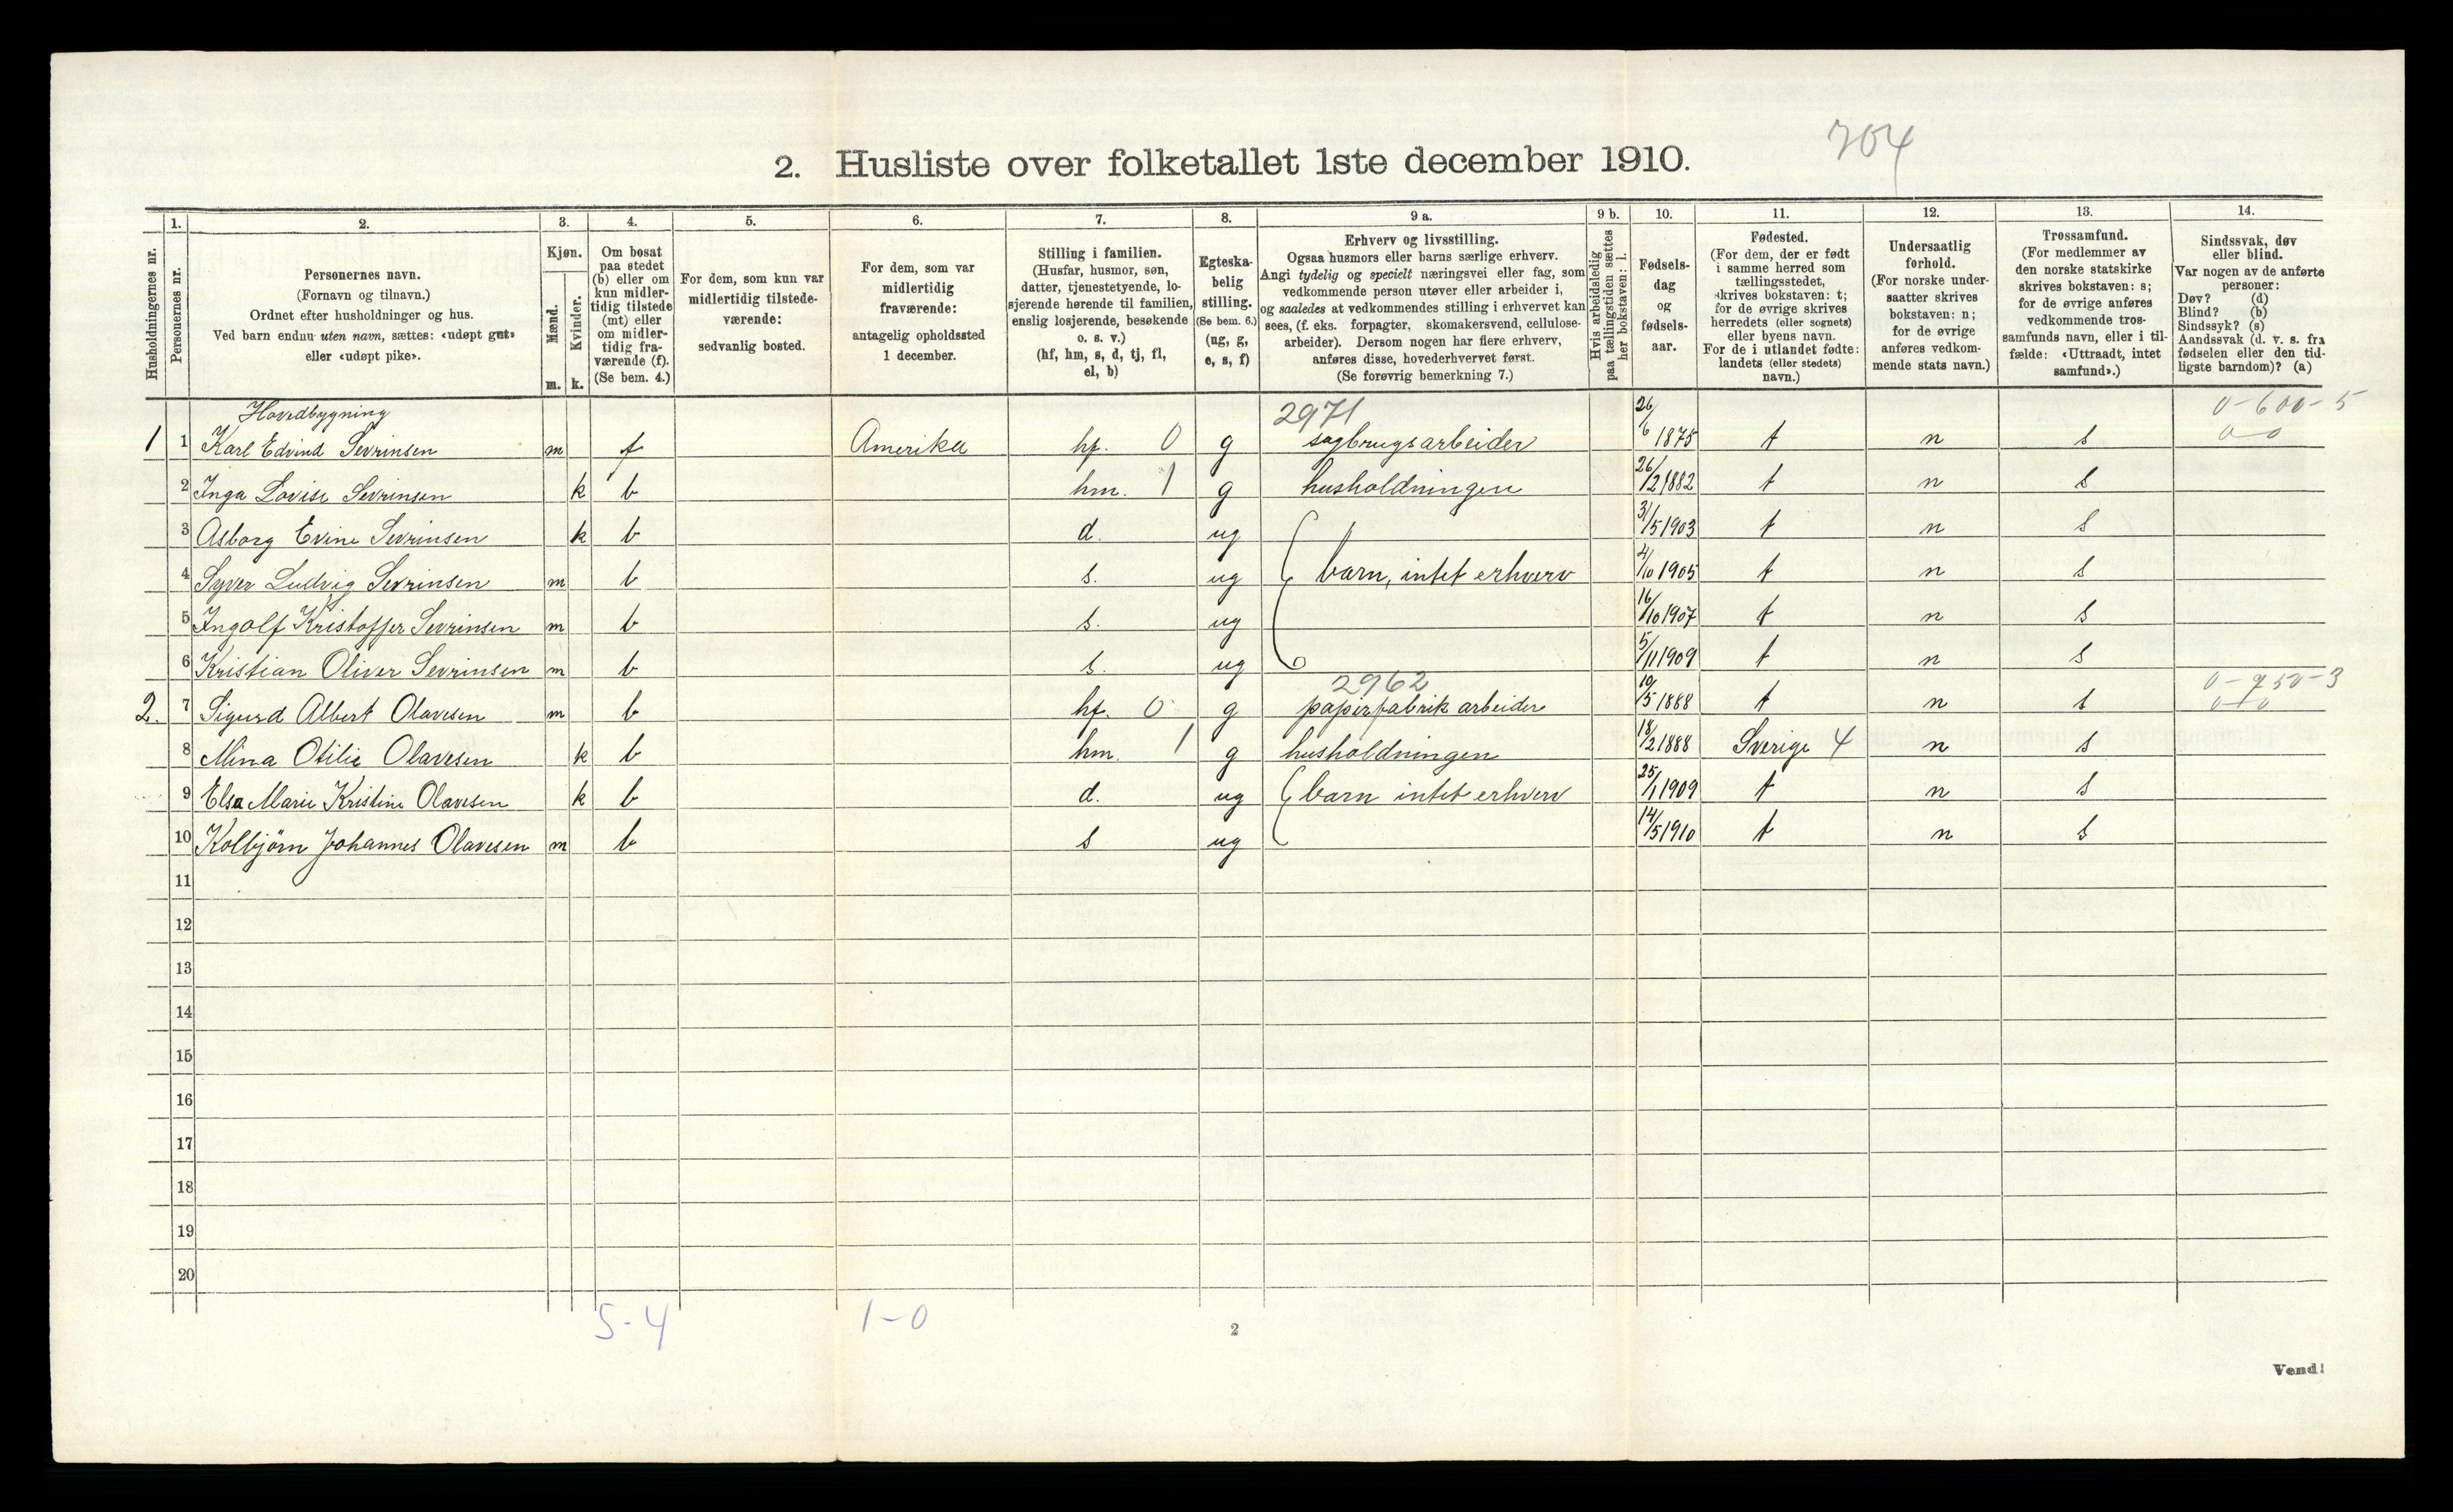 704
2. Husliste over folketallet 1ste december 1910.
Husholdningernes nr.
1.
Personernes nr.
2.
Personernes navn.
(Fornavn og tilnavn.)
Ordnet efter husholdninger og hus.
Ved barn endnu uten navn, sættes: «udøpt gut»
eller «udøpt pike».
3.
Kjøn.
Mænd.
Kvinder.
m. k.
4.
Om bosat
paa stedet
(b) eller om
kun midler-
tidig tilstede
(mt) eller
om midler-
tidig fra-
værende (f).
(Se bem. 4.)
5.
For dem, som kun var
midlertidig tilstede-
værende:
sedvanlig bosted.
6.
For dem, som var
midlertidig
fraværende:
antagelig opholdssted
1 december.
7.
Stilling i familien.
(Husfar, husmor, søn,
datter, tjenestetyende, lo-
sjerende hørende til familien,
enslig losjerende, besøkende
o. s. v.)
(hf, hm, s, d, tj, fl,
el, b)
8.
Egteska-
belig
stilling.
(Se bem. 6.)
(ug, g,
e, s, f)
9 a.
Erhverv og livsstilling.
Ogsaa husmors eller barns særlige erhverv.
Angi tydelig og specielt næringsvei eller fag, som
vedkommende person utøver eller arbeider i,
og saaledes at vedkommendes stilling i erhvervet kan
sees, (f. eks. forpagter, skomakersvend, cellulose-
arbeider). Dersom nogen har flere erhverv,
anføres disse, hovederhvervet først.
(Se forøvrig bemerkning 7.)
9 b.
Hvis arbeidsledig
paa tællingstiden sættes
her bokstaven: l.
10.
Fødsels-
dag
og
fødsels-
aar.
11.
Fødested.
(For dem, der er født
i samme herred som
tællingsstedet,
skrives bokstaven: t;
for de øvrige skrives
herredets (eller sognets)
eller byens navn.
For de i utlandet fødte:
landets (eller stedets)
navn.)
12.
Undersaatlig
forhold.
(For norske under-
saatter skrives
bokstaven: n;
for de øvrige
anføres vedkom-
mende stats navn.)
13.
Trossamfund.
(For medlemmer av
den norske statskirke
skrives bokstaven: s;
for de øvrige anføres
vedkommende tros-
samfunds navn, eller i til-
fælde: «Uttraadt, intet
samfund».)
14.
Sindssvak, døv
eller blind.
Var nogen av de anførte
personer:
Døv? (d)
Blind? (b)
Sindssyk? (s)
Aandssvak (d. v. s. fra
fødselen eller den tid-
ligste barndom)? (a)
Hovedbygning 2971 0-600-5
1 1 Karl Edvind Sevrinsen m f Amerika hf. 0 g sagbrugsarbeider 26/6 1875 t n s 0-0
2 Inga Lovise Sevrinsen k b hm. 1 g husholdningen 26/2 1882 t n s
3 Asborg Evine Sevrinsen k b d. ug 31/5 1903 t n s
4 Syver Ludvig Sevrinsen m b s. ug barn, intet erhverv 4/10 1905 t n s
5 Ingolf Kristoffer Sevrinsen m b s. ug 16/10 1907 t n s
6 Kristian Oliver Sevrinsen m b s. ug 5/11 1909 t n s
2962 0-950-3
2. 7 Sigurd Albert Olavesen m b hf. 0 g papirfabrik arbeider 10/5 1888 t n s 0-0
8 Mina Otilie Olavesen k b hm. 1 g husholdningen 18/2 1888 Sverige 4 n s
9 Elsa Marie Kristine Olavesen k b d. ug barn intet erhverv 25/1 1909 t n s
10 Kolbjörn Johannes Olavesen m b s ug 14/5 1910 t n s
11
12
13
14
15
16
17
18
19
20
5-4 1-0
2
Vend!